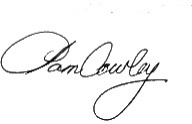 Pam Cowley